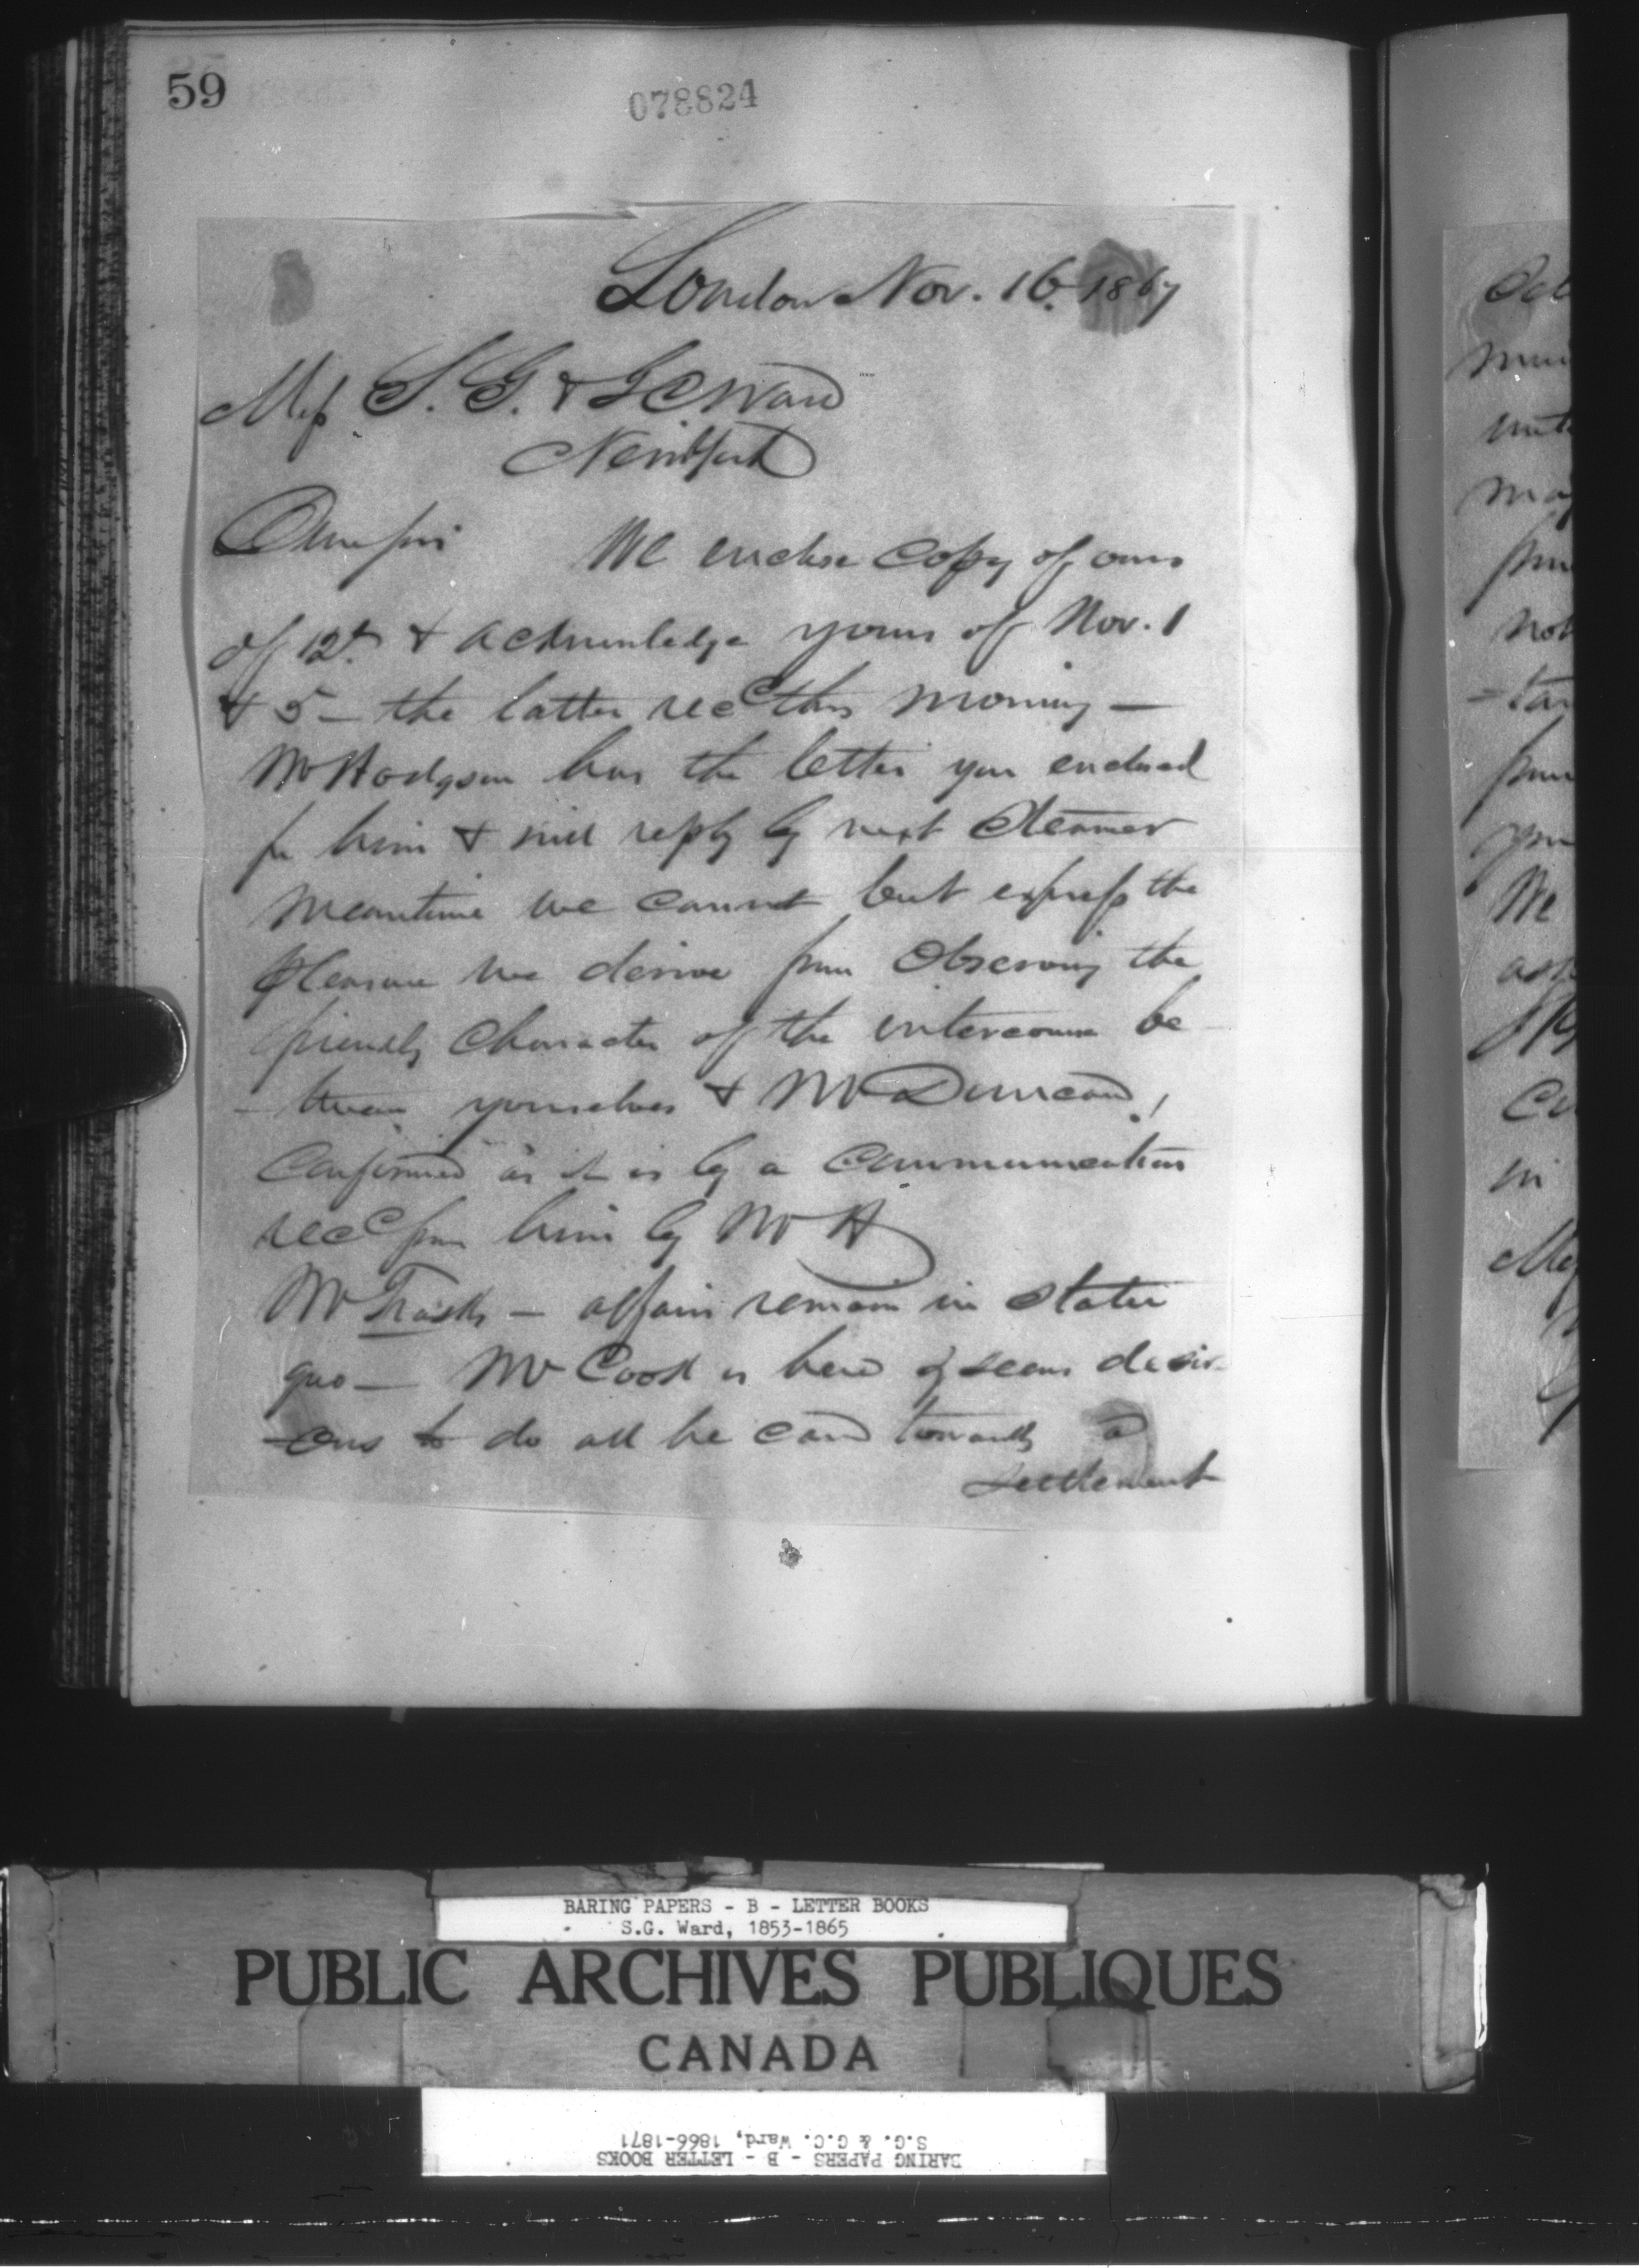 59
078824
London Nov. 16. 1867
Mess S. G. & G C Ward
New York
Dear Sirs We enclose copy of ours
of 12th & acknowledge yours of Nov. 1
& 5 — the latter recd this morning —
Mr Hodgson has the letter you enclosed
for him & will reply by next Steamer
Meantime we cannot but express the
pleasure we derive from observing the
friendly character of the intercourse be
- tween yourselves & Mr Duncan,
Confirmed as it is by a communication
recd from him by Mr H
Mr Trask — affairs remain in statu
quo — Mr Cook is here & seems desir-
-ous to do all he can towards a
settlement
BARING PAPERS - B - LETTER BOOKS
S.G. Ward, 1853-1865
PUBLIC ARCHIVES PUBLIQUES
CANADA
BARING PAPERS - B - LETTER BOOKS
S.G. & G.C. Ward, 1866-1871